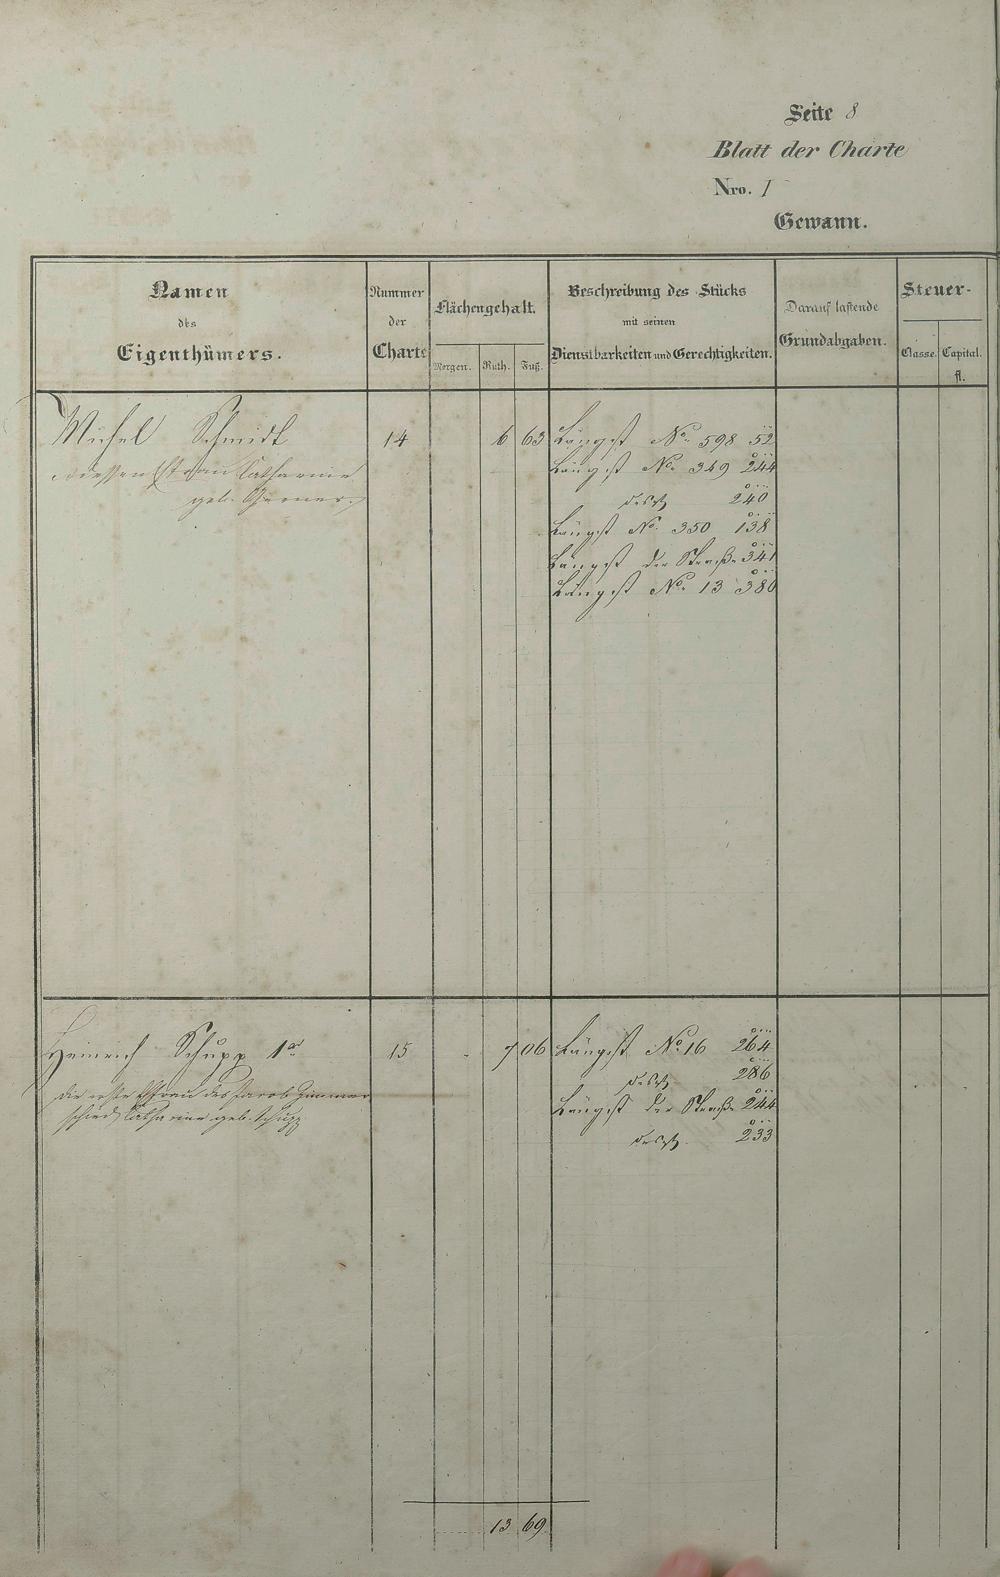 Seite 8
Blatt der Charte
Nro. I
Gewann.
Namen
des
Eigenthümers.
Nummer
der
Charte
Flächengehalt.
Morgen. Ruth. Fuß.
Beschreibung des Stücks
mit seinen
Dienstbarkeiten und Gerechtigkeiten.
Darauf lastende
Grundabgaben.
Steuer-
Classe. Capital.
fl.
Michel Schmidt 14 6 63 Längst No. 598 52
dessen Frau Catharine Längst No. 349 244
geb. 240
Längst No. 350 138
Längst der Straße 341
Längst No. 13 380
Heinrich Schupp 1r 15 - 7 06 Längst No. 16 264
286
die erste Frau des Jacob Zimmer
Längst der Straße 244
schied Catharine geb. Schupp
233
13 69